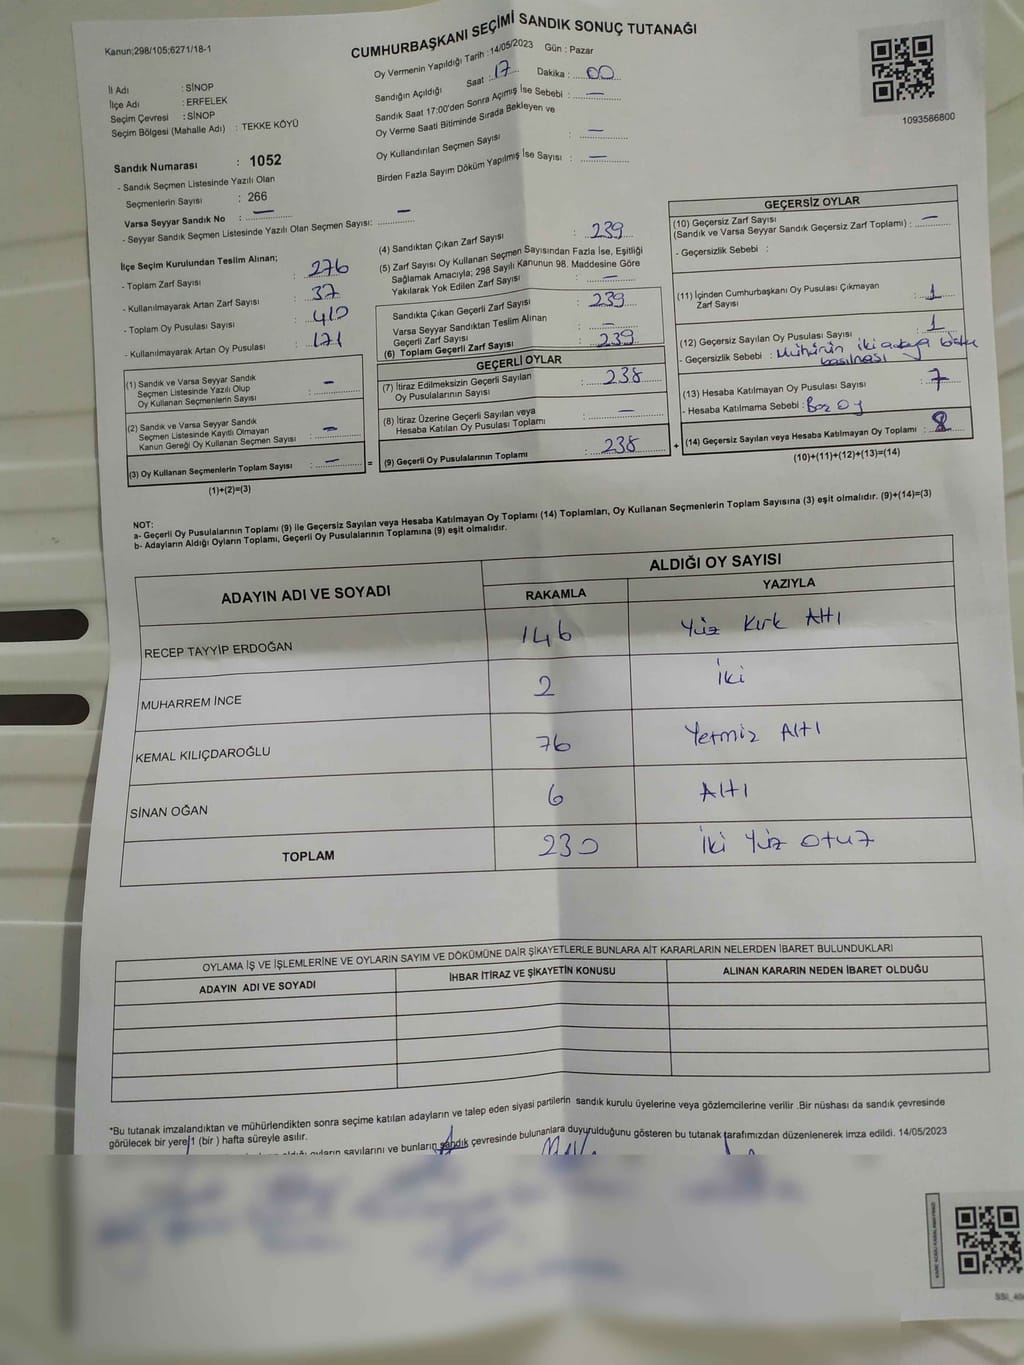 Kanun;298/105;6271/18-1
CUMHURBAŞKANI SEÇİMİ SANDIK SONUÇ TUTANAĞI
Oy Vermenin Yapıldığı Tarih : 14/05/2023 Gün : Pazar
İl Adı : SİNOP
İlçe Adı : ERFELEK
Seçim Çevresi : SİNOP
Seçim Bölgesi (Mahalle Adı) : TEKKE KÖYÜ
Sandığın Açıldığı Saat : 17 Dakika : 00
Sandık Saat 17:00'den Sonra Açımış İse Sebebi : —
Oy Verme Saati Bitiminde Sırada Bekleyen ve
Oy Kullandırılan Seçmen Sayısı : —
Birden Fazla Sayım Döküm Yapılmış İse Sayısı : —
1093586800
Sandık Numarası : 1052
- Sandık Seçmen Listesinde Yazılı Olan
Seçmenlerin Sayısı : 266
Varsa Seyyar Sandık No : —
- Seyyar Sandık Seçmen Listesinde Yazılı Olan Seçmen Sayısı: —
İlçe Seçim Kurulundan Teslim Alınan;
- Toplam Zarf Sayısı : 276
- Kullanılmayarak Artan Zarf Sayısı : 37
- Toplam Oy Pusulası Sayısı : 410
- Kullanılmayarak Artan Oy Pusulası : 171
(1) Sandık ve Varsa Seyyar Sandık
Seçmen Listesinde Yazılı Olup
Oy Kullanan Seçmenlerin Sayısı : —
(2) Sandık ve Varsa Seyyar Sandık
Seçmen Listesinde Kayıtlı Olmayan
Kanun Gereği Oy Kullanan Seçmen Sayısı : —
(3) Oy Kullanan Seçmenlerin Toplam Sayısı : — =
(1)+(2)=(3)
(4) Sandıktan Çıkan Zarf Sayısı : 239
(5) Zarf Sayısı Oy Kullanan Seçmen Sayısından Fazla İse, Eşitliği
Sağlamak Amacıyla; 298 Sayılı Kanunun 98. Maddesine Göre
Yakılarak Yok Edilen Zarf Sayısı : —
Sandıkta Çıkan Geçerli Zarf Sayısı : 239
Varsa Seyyar Sandıktan Teslim Alınan
Geçerli Zarf Sayısı : —
(6) Toplam Geçerli Zarf Sayısı : 239
GEÇERLİ OYLAR
(7) İtiraz Edilmeksizin Geçerli Sayılan
Oy Pusulalarının Sayısı : 238
(8) İtiraz Üzerine Geçerli Sayılan veya
Hesaba Katılan Oy Pusulası Toplamı : —
(9) Geçerli Oy Pusulalarının Toplamı : 238 +
GEÇERSİZ OYLAR
(10) Geçersiz Zarf Sayısı
(Sandık ve Varsa Seyyar Sandık Geçersiz Zarf Toplamı) : —
- Geçersizlik Sebebi :
(11) İçinden Cumhurbaşkanı Oy Pusulası Çıkmayan
Zarf Sayısı : 1
(12) Geçersiz Sayılan Oy Pusulası Sayısı : 1
- Geçersizlik Sebebi : Mühürün iki
basılması
(13) Hesaba Katılmayan Oy Pusulası Sayısı : 7
- Hesaba Katılmama Sebebi : Boz Oy
(14) Geçersiz Sayılan veya Hesaba Katılmayan Oy Toplamı : 8
(10)+(11)+(12)+(13)=(14)
NOT:
a- Geçerli Oy Pusulalarının Toplamı (9) ile Geçersiz Sayılan veya Hesaba Katılmayan Oy Toplamı (14) Toplamları, Oy Kullanan Seçmenlerin Toplam Sayısına (3) eşit olmalıdır. (9)+(14)=(3)
b- Adayların Aldığı Oyların Toplamı, Geçerli Oy Pusulalarının Toplamına (9) eşit olmalıdır.
ADAYIN ADI VE SOYADI ALDIĞI OY SAYISI
RAKAMLA YAZIYLA
RECEP TAYYİP ERDOĞAN 146 Yüz Kırk Altı
MUHARREM İNCE 2 İki
KEMAL KILIÇDAROĞLU 76 Yetmiz Altı
SİNAN OĞAN 6 Altı
TOPLAM 230 İki Yüz Otuz
OYLAMA İŞ VE İŞLEMLERİNE VE OYLARIN SAYIM VE DÖKÜMÜNE DAİR ŞİKAYETLERLE BUNLARA AİT KARARLARIN NELERDEN İBARET BULUNDUKLARI
ADAYIN ADI VE SOYADI İHBAR İTİRAZ VE ŞİKAYETİN KONUSU ALINAN KARARIN NEDEN İBARET OLDUĞU
*Bu tutanak imzalandıktan ve mühürlendikten sonra seçime katılan adayların ve talep eden siyasi partilerin sandık kurulu üyelerine veya gözlemcilerine verilir .Bir nüshası da sandık çevresinde
görülecek bir yere 1 (bir ) hafta süreyle asılır.
oyların sayılarını ve bunların sandık çevresinde bulunanlara duyurulduğunu gösteren bu tutanak tarafımızdan düzenlenerek imza edildi. 14/05/2023